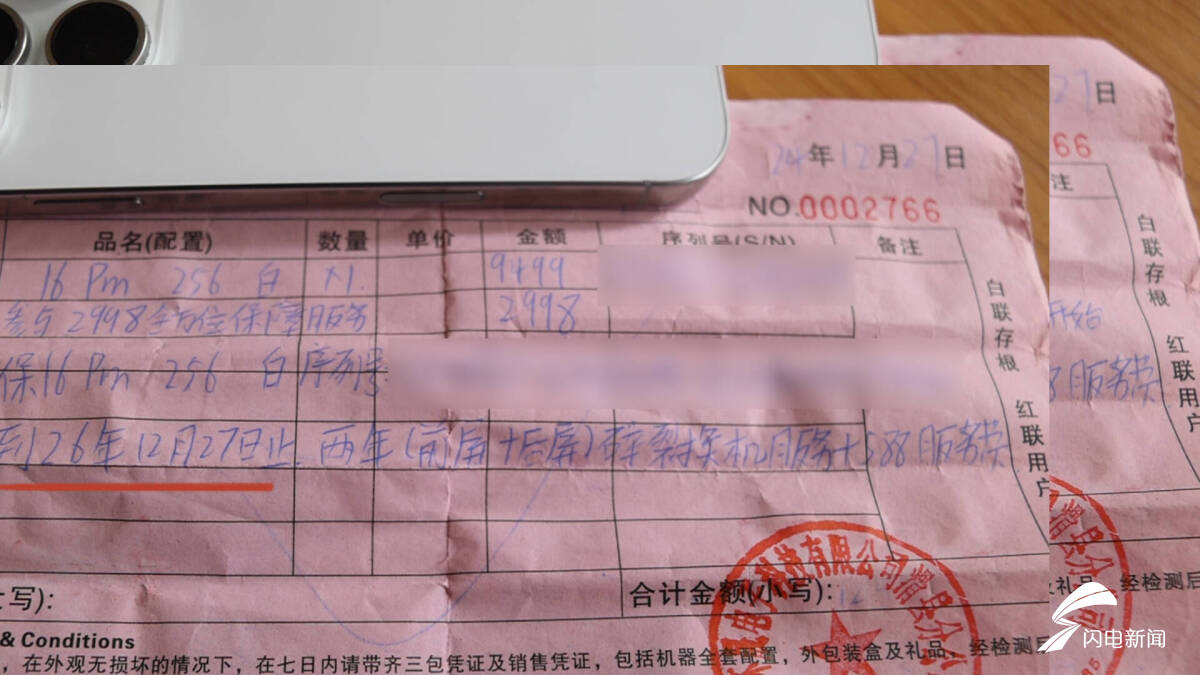 24年12月27日
27日
NO.0002766
66
品名(配置) 数量 单价 金额 序列号(S/N) 备注
注
16 Pm 256 白 x1. 9499
参与2998全方位保障服务 2998
保16 Pm 256 白 序列号
到26年12月27日止 两年(前屏+后屏)碎裂换机服务+588服务费
开始
8服务费
白联存根 红联用户
白联存根 红联用户
合计金额(小写):
写):
有限公司
县分公司
& Conditions
，在外观无损坏的情况下，在七日内请带齐三包凭证及销售凭证，包括机器全套配置，外包装盒及礼品，经检测后
及礼品，经检测后
闪电新闻